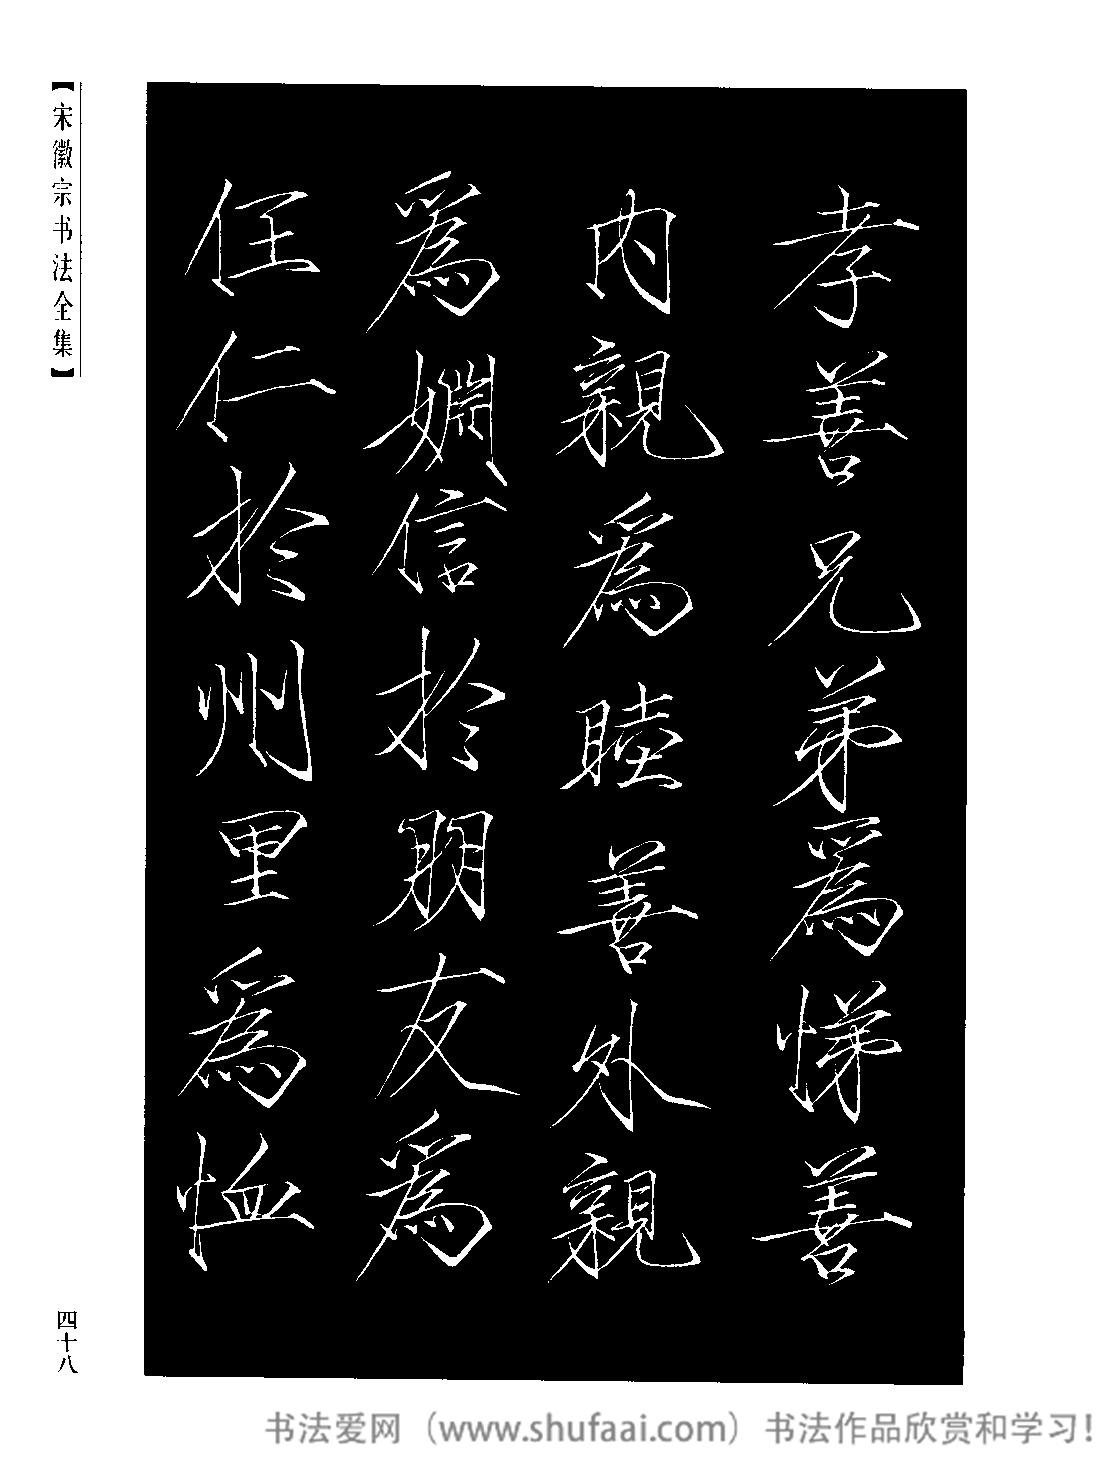 孝善兄弟爲悌善
内親爲睦善外親
爲婣信於朋友爲
任仁於州里爲恤
【宋徽宗书法全集】
四十八
书法爱网（www.shufaai.com）书法作品欣赏和学习！